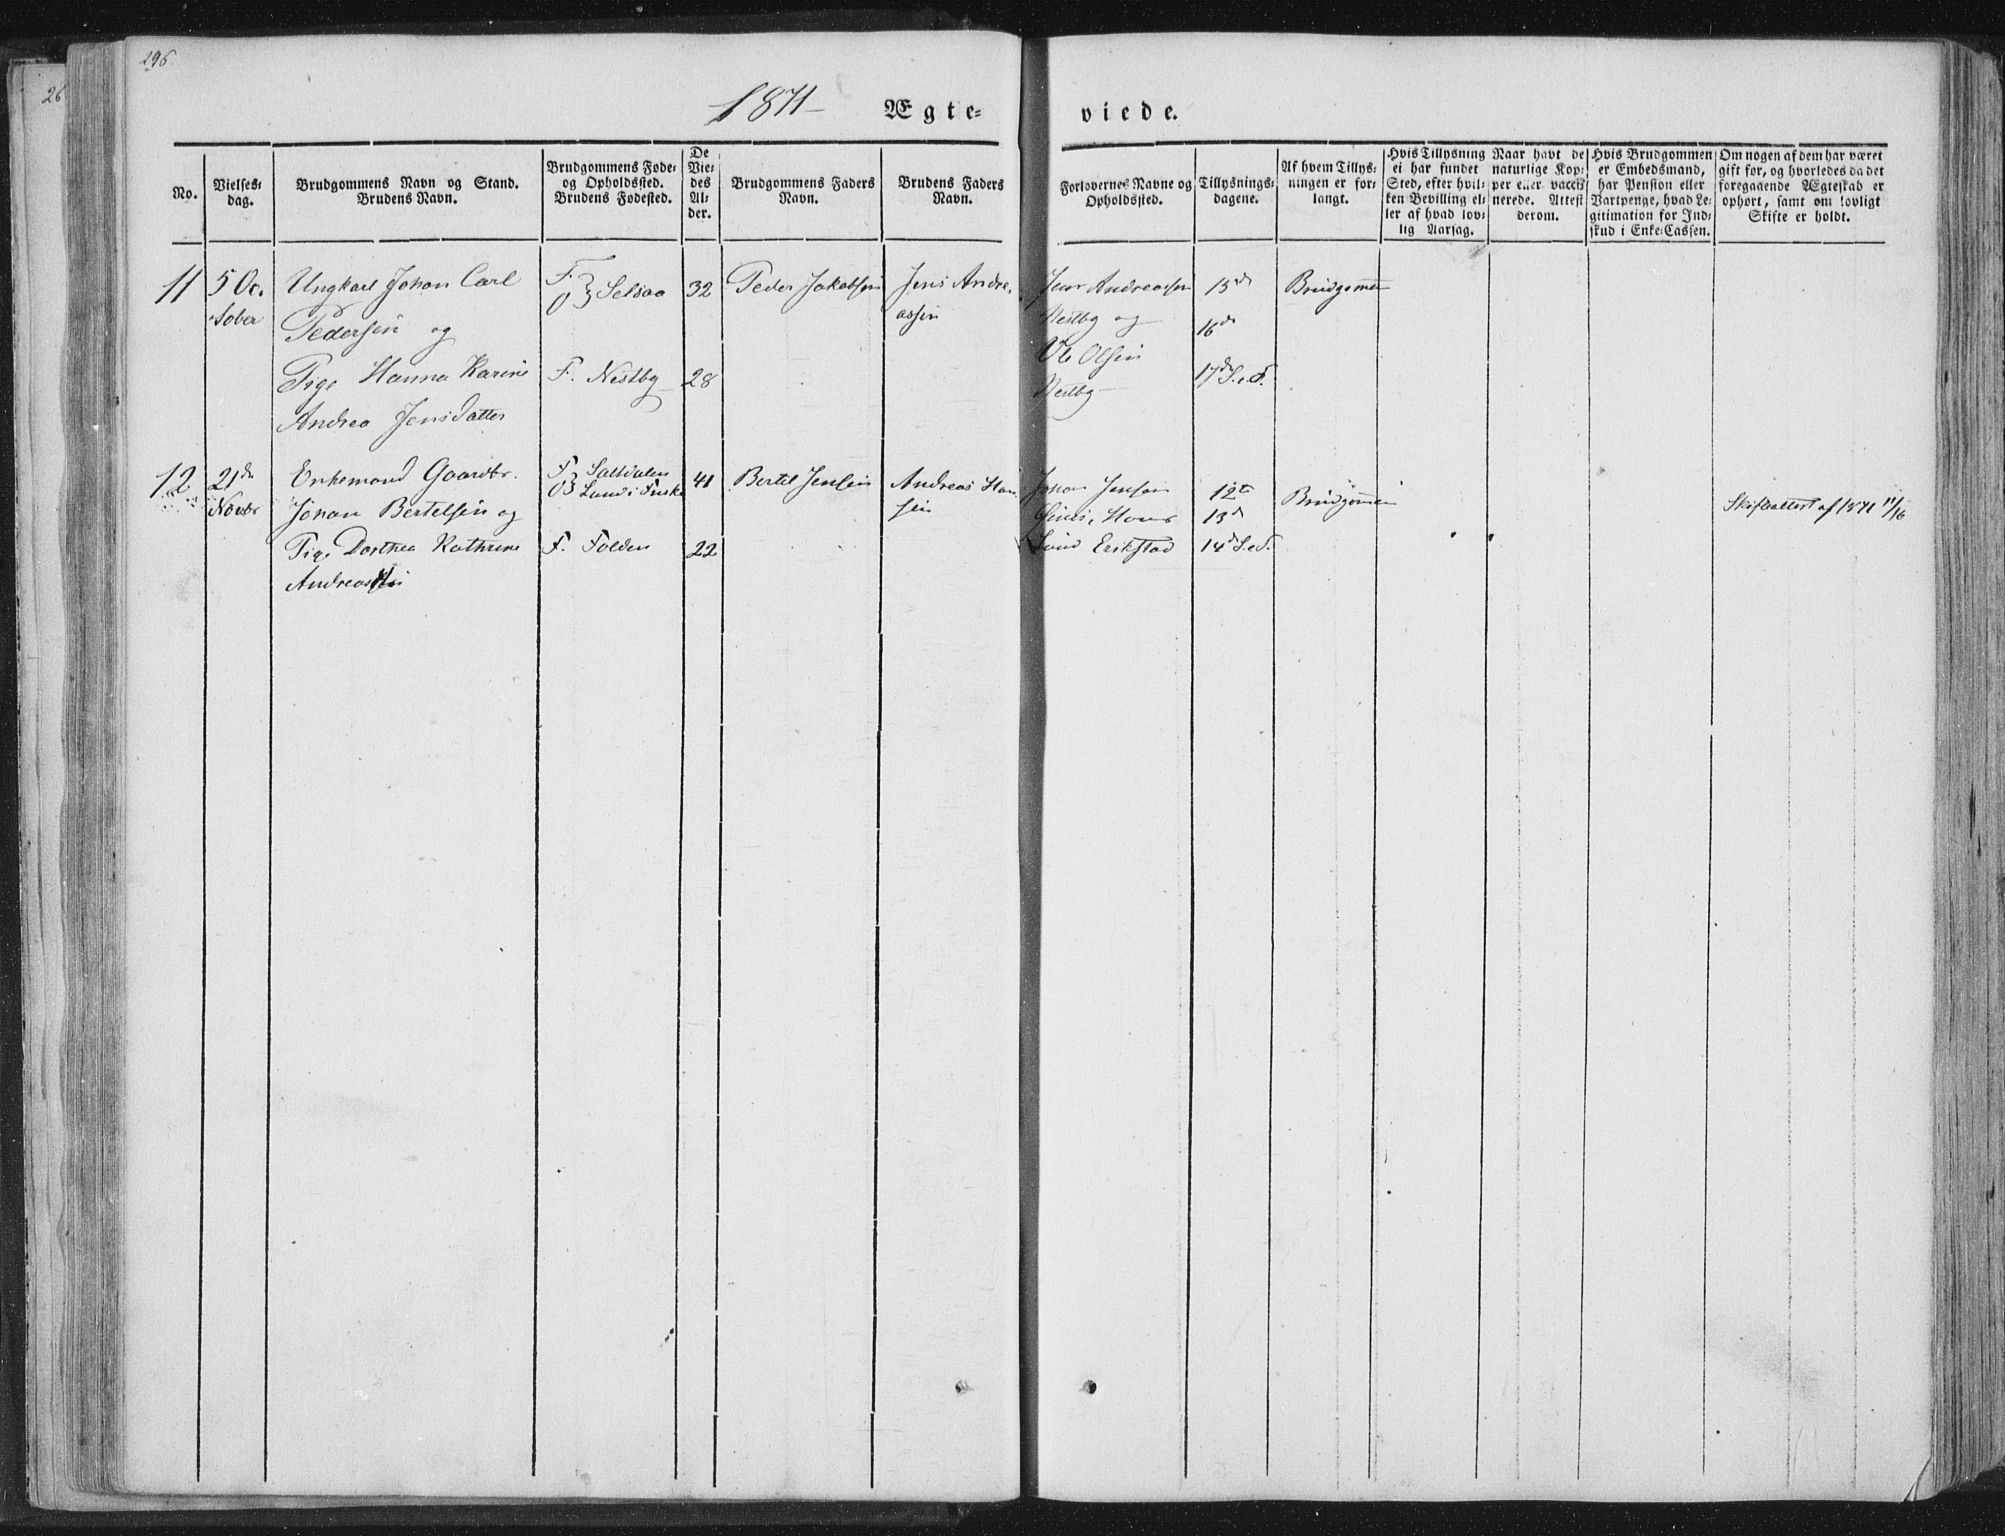 296.
26
1871
Ægte-
viede.
No.
Vielses-
dag.
Brudgommens Navn og Stand.
Brudens Navn.
Brudgommens Føde-
og Opholdssted.
Brudens Fødested.
De
Vie-
des
Al-
der.
Brudgommens Faders
Navn.
Brudens Faders
Navn.
Forlovernes Navne og
Opholdssted.
Tillysnings-
dagene.
Af hvem Tillys-
ningen er for-
langt.
Hvis Tillysning
ei har fundet
Sted, efter hvil-
ken Bevilling el-
ler af hvad lov-
lig Aarsag.
Naar havt de
naturlige Kop-
per eller vacci-
nerede. Attest
derom.
Hvis Brudgommen
er Embedsmand,
har Pension eller
Vartpenge, hvad Le-
gitimation for Ind-
skud i Enke-Cassen.
Om nogen af dem har været
gift før, og hvorledes da det
foregaaende Ægteskab er
ophørt, samt om lovligt
Skifte er holdt.
11
5 Oc.
tober
Ungkarl Johan Carl
Pedersen og
Pige Hanna Karine
Andrea Jensdatter
F.
O } Selsaa
F. Nestby
32
28
Peder Jakobsen
Jens Andre-
assen
Jens Andreassen
Nestby og
Ole Olsen
Nestby
15de
16de
17de S.e.T.
Brudgommen
12
21de
Novbr
Enkemand Gaardbr.
Johan Bertelsen og
Pige Dorthea Kathrine
Andreas
F. Saltdalen
O } Lund i Fuske
F. Folden
41
22
Bertel Jensen
Andreas Han
sen
Johan Jensen
Hans
Lund Erikstad
12te
13de
14de S.e.T.
Brudgommen
Skifteattest af 1871 11/16